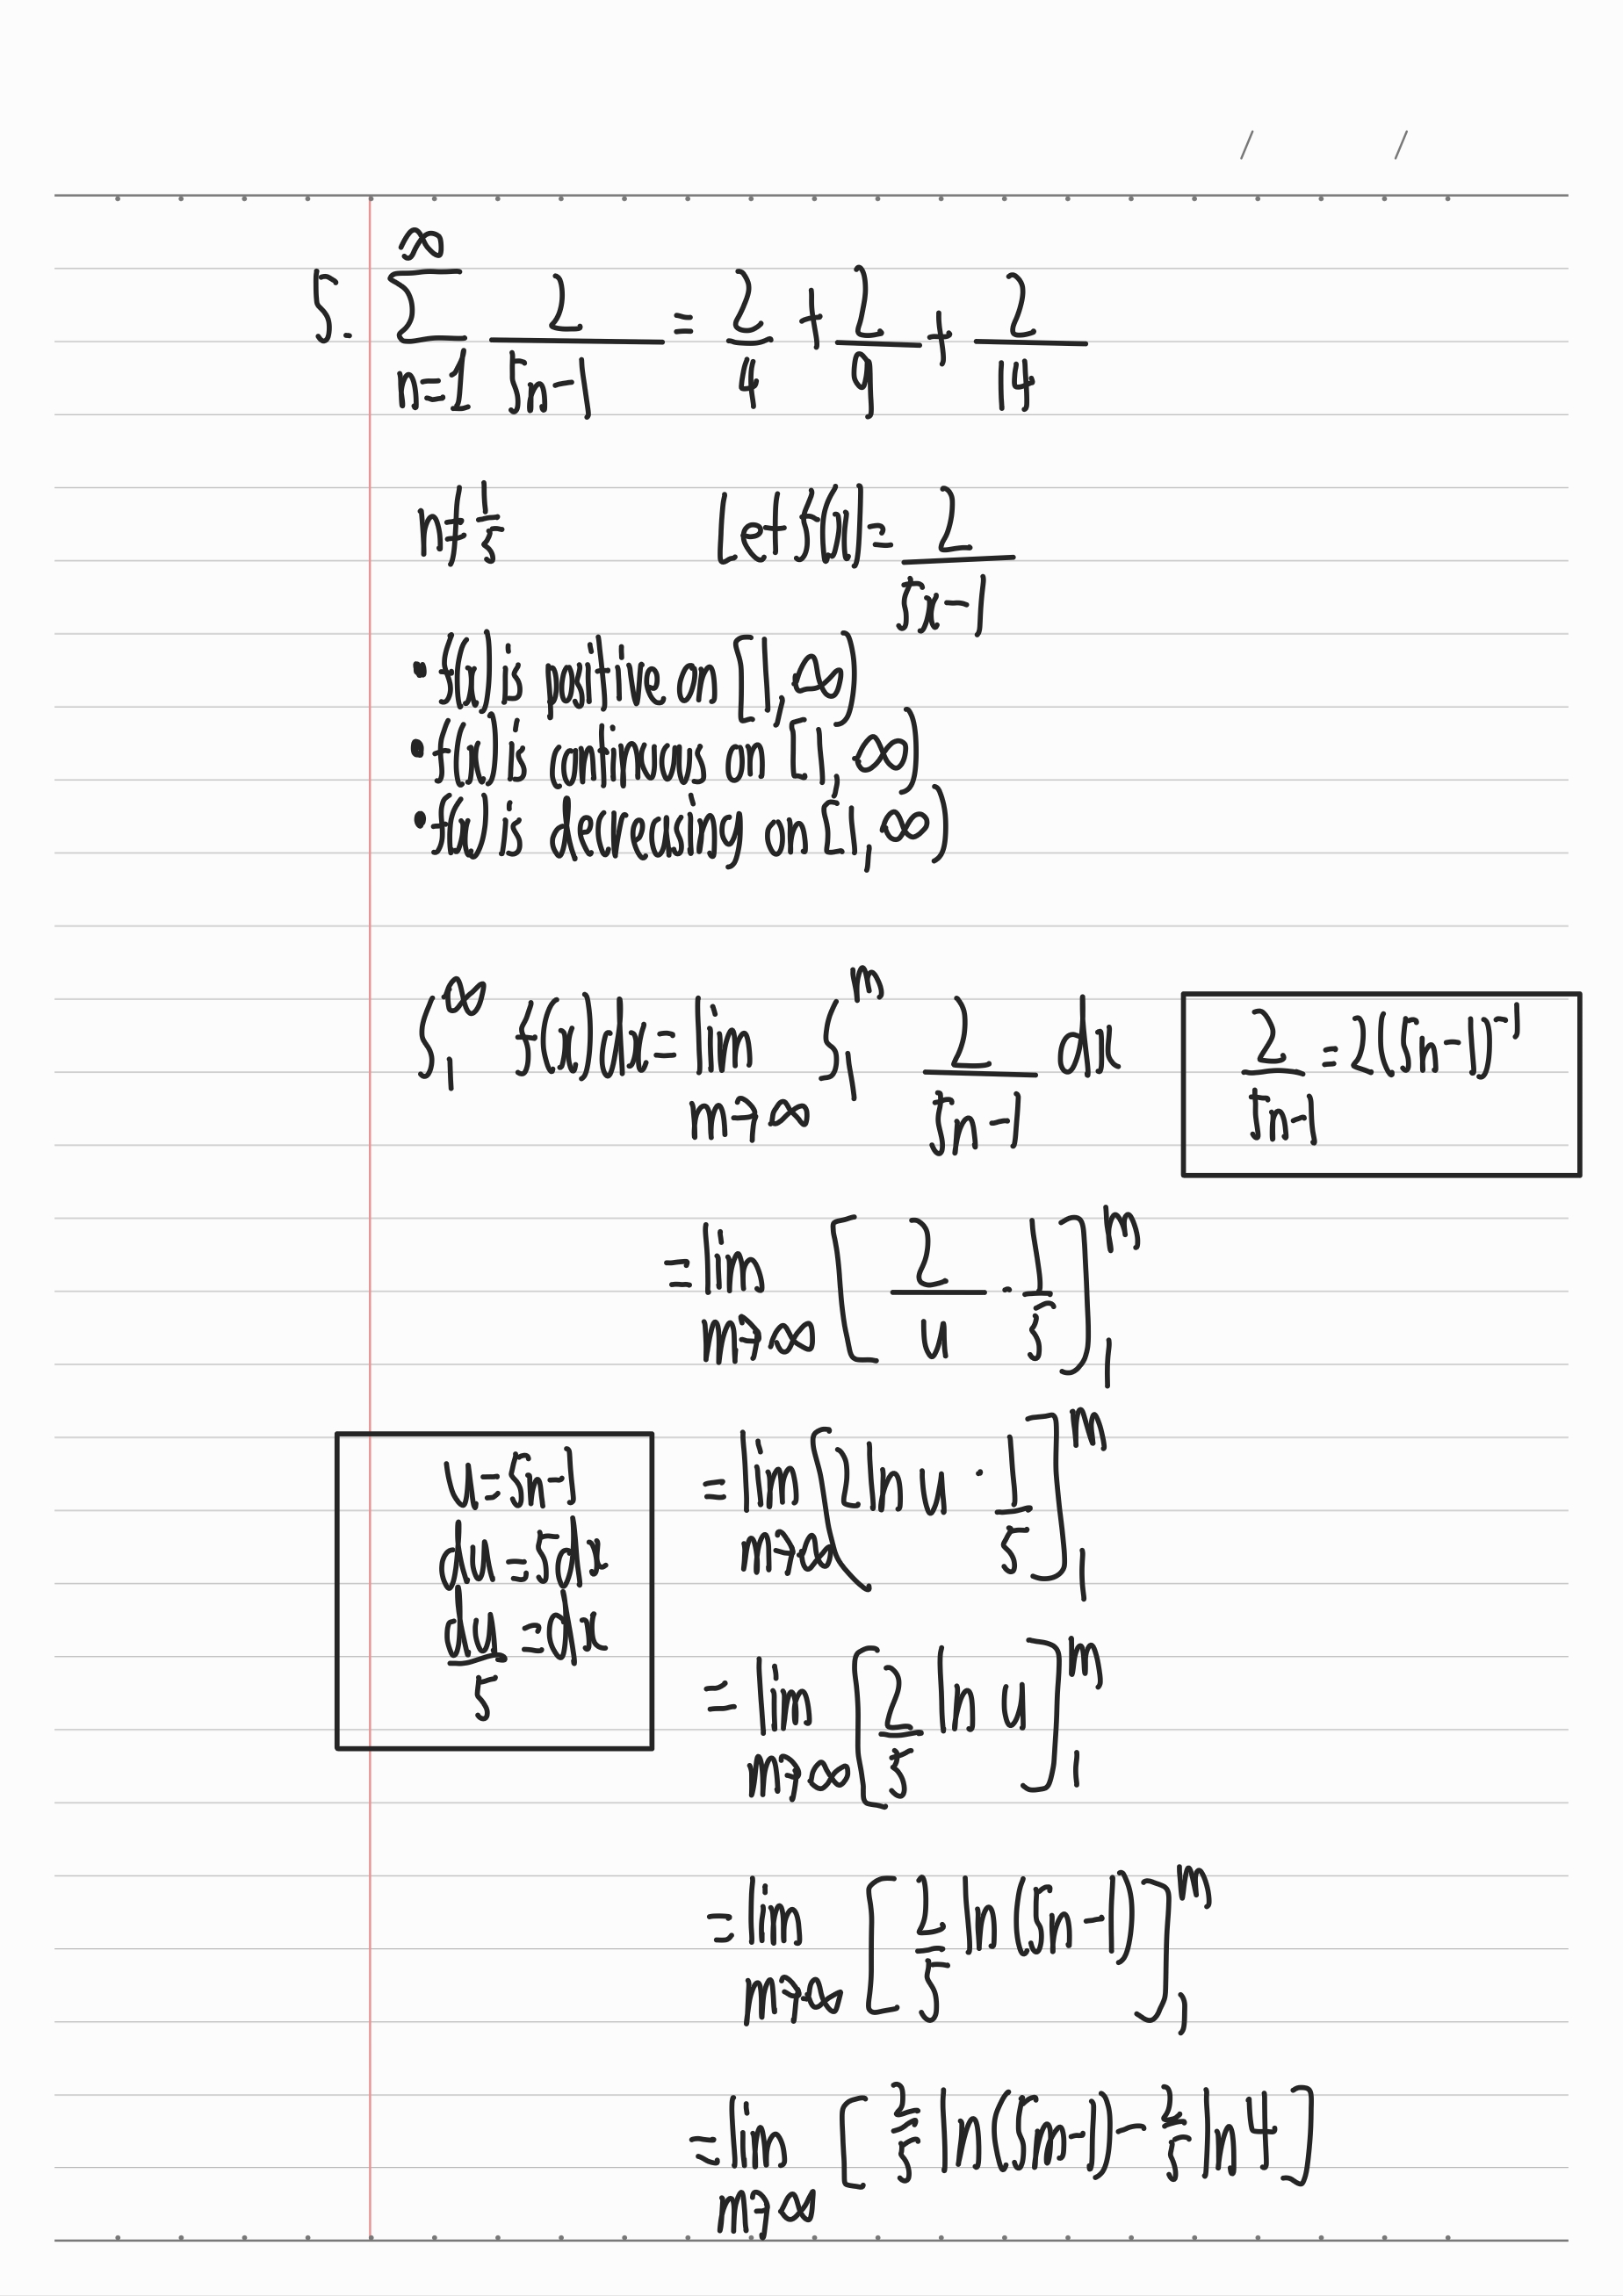 5. ∑_{n=1}^{∞} 2/(5n-1) = 2/4 + 2/9 + 2/14
n ≠ 1/5    Let f(x) = 2/(5x-1)
• f(x) is positive on [1,∞)
• f(x) is continuous on [1,∞)
• f(x) is decreasing on [1,∞)
∫_1^∞ f(x) dx = lim_{m→∞} ∫_1^m 2/(5n-1) dx    2/(5n-1) = 2(5n-1)^{-1}
= lim_{m→∞} [2/u · 1/5]_1^m
u = 5n-1
du = 5dx
du/5 = dx
= lim_{m→∞} [2 ln u · 1/5]_1^m
= lim_{m→∞} [2/5 ln u]_1^m
= lim_{m→∞} [2/5 ln(5n-1)]_1^m
= lim_{m→∞} [2/5 ln(5m-1) - 2/5 ln 4]